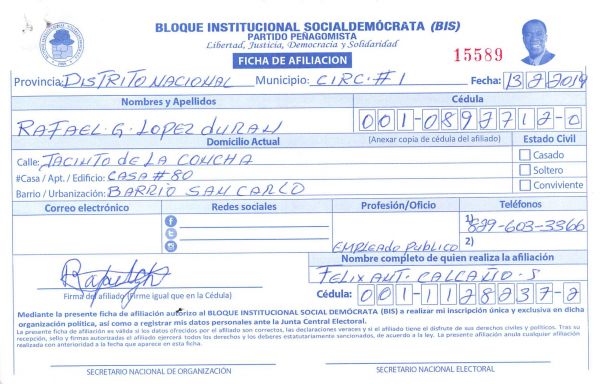 BLOQUE INSTITUCIONAL SOCIALDEMÓCRATA (BIS)
PARTIDO PEÑAGOMISTA
Libertad, Justicia, Democracia y Solidaridad
FICHA DE AFILIACION
15589
Provincia: DISTRITO NACIONAL Municipio: CIRC. #1 Fecha: 13-2-2019
Nombres y Apellidos Cédula
RAFAEL. G. LOPEZ DURAN 001-0892712-0
Domicilio Actual (Anexar copia de cédula del afiliado) Estado Civil
Calle: JACINTO DE LA CONCHA Casado
#Casa / Apt. / Edificio: CASA #80 Soltero
Barrio / Urbanización: BARRIO SAN CARLO Conviviente
Correo electrónico Redes sociales Profesión/Oficio Teléfonos
1) 829-603-3366
EMPLEADO PUBLICO 2)
Nombre completo de quien realiza la afiliación
FELIX ANT. CALCAÑO. S
Firma del afiliado (Firme igual que en la Cédula) Cédula: 001-1128237-2
Mediante la presente ficha de afiliación autorizo al BLOQUE INSTITUCIONAL SOCIAL DEMÓCRATA (BIS) a realizar mi inscripción única y exclusiva en dicha
organización política, así como a registrar mis datos personales ante la Junta Central Electoral.
La presente ficha de afiliación es válida si los datos ofrecidos por el afiliado son correctos, las declaraciones veraces y si el afiliado tiene el disfrute de sus derechos civiles y políticos. Tras su
recepción, sello y firmas autorizadas el afiliado ejercerá todos los derechos y los deberes estatutariamente sancionados, de acuerdo a la ley. La presente afiliación anula cualquier afiliación
realizada con anterioridad a la fecha que aparece en esta ficha.
SECRETARIO NACIONAL DE ORGANIZACIÓN SECRETARIO NACIONAL ELECTORAL